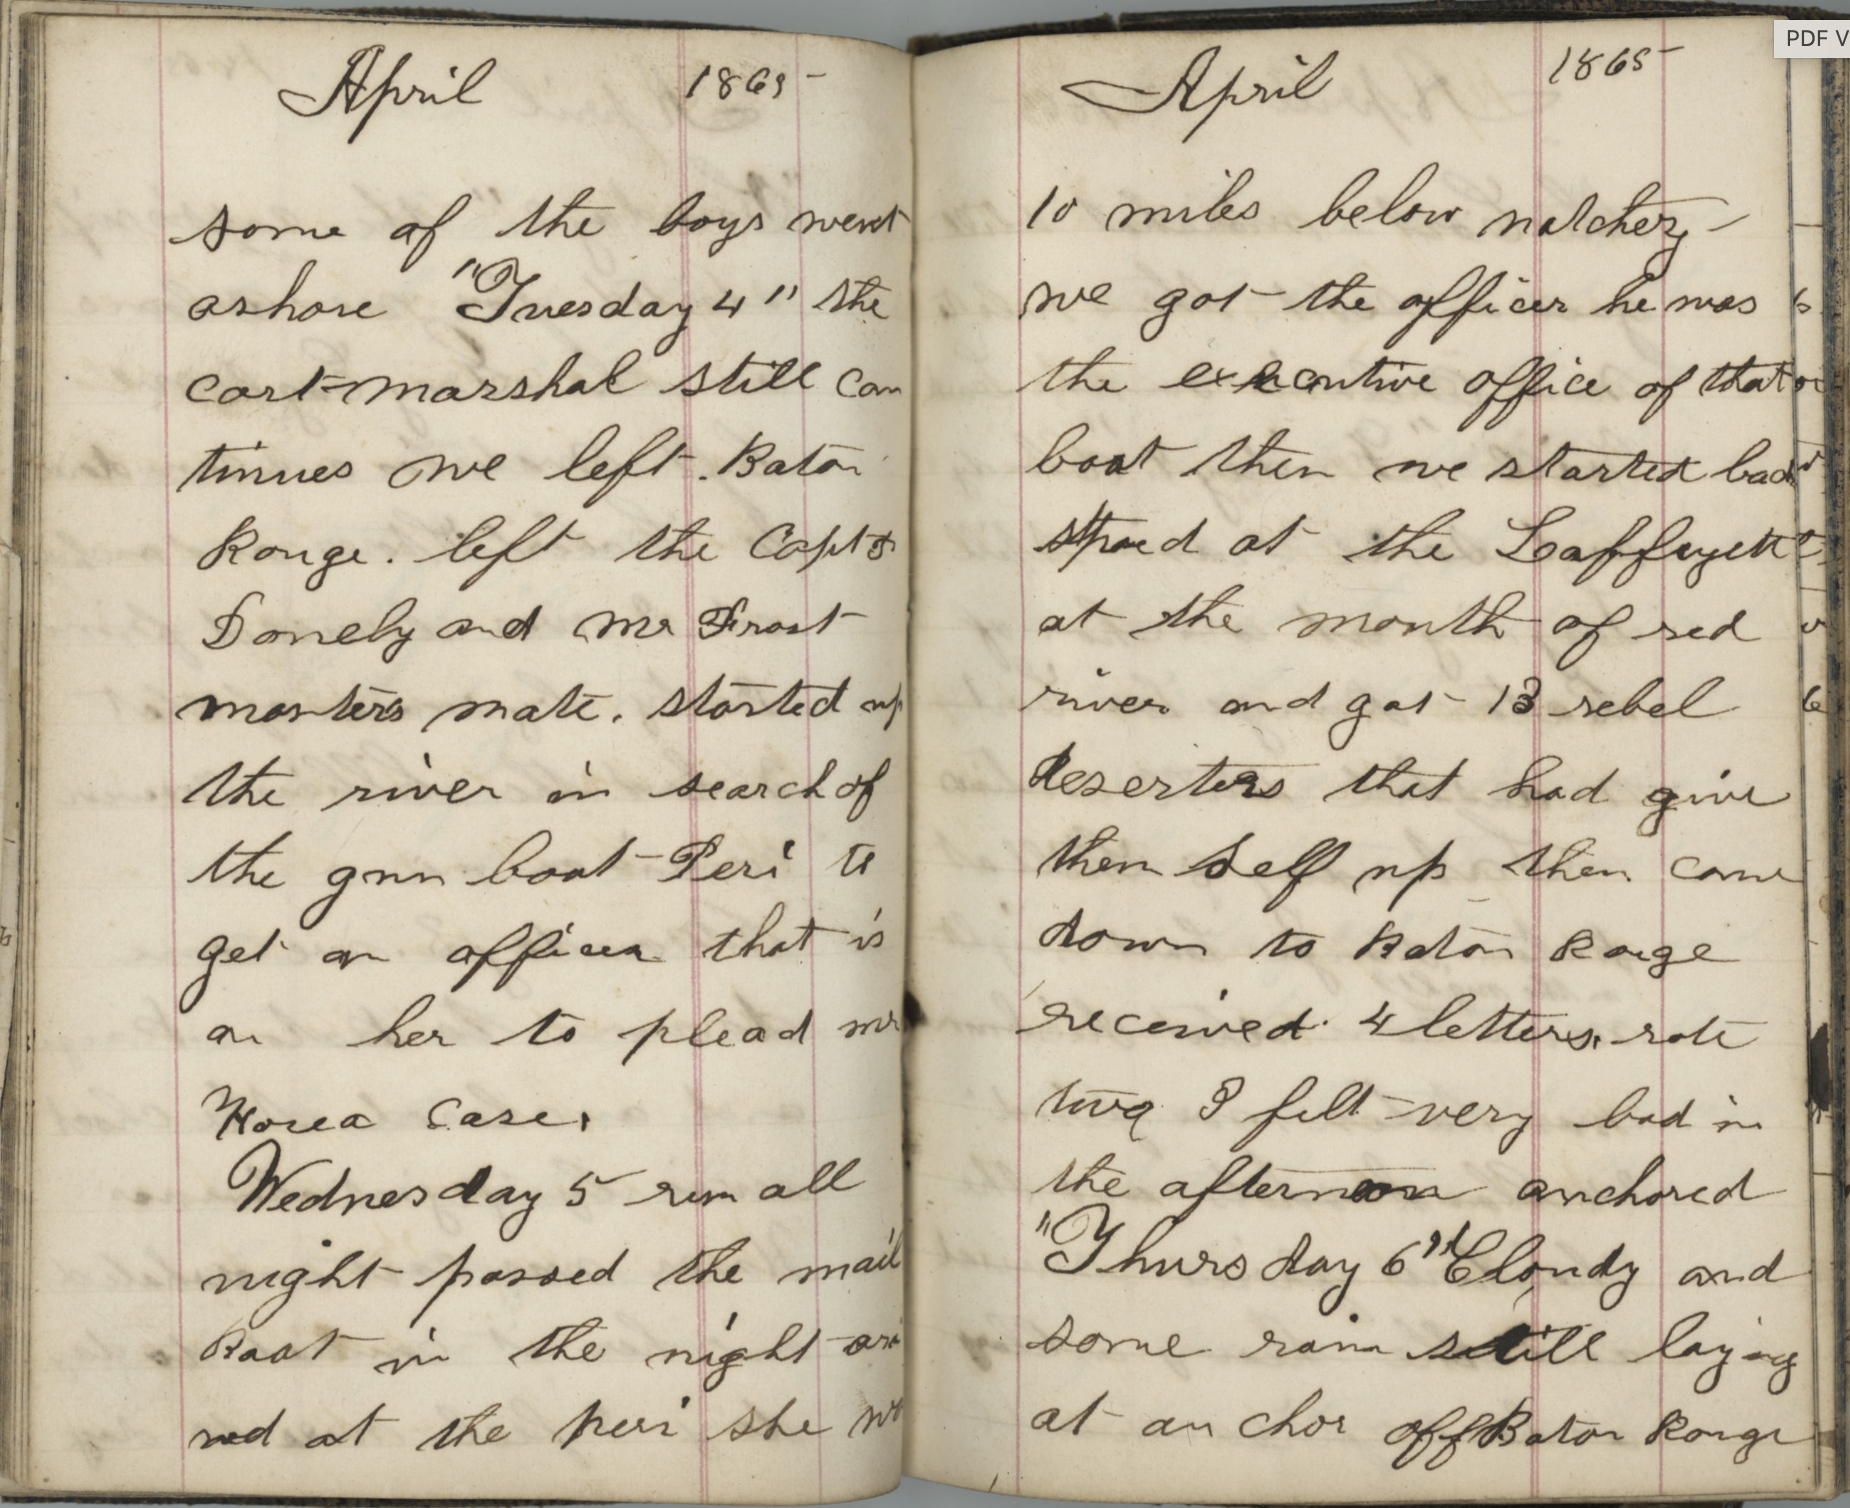 April 1865
some of the boys went
ashore "Tuesday 4" the
cort-marshal still con
tinues we left. Baton
Rouge. left the Capt &
Donely and Mr Frost
masters mate. started up
the river in search of
the gun boat Peri to
get an officer that is
on her to plead mr
case.
Wednesday 5 run all
night passed the mail
Boat in the night ari
ved at the peri she
April 1865
10 miles below natchez
we got the officer he was
the executive office of that
boat then we started back
stoped at the Laffayett
at the mouth of red
river and got 13 rebel
deserters that had give
them self up then came
down to Baton Rouge
received 4 letters. rote
two I felt very bad in
the afternoon anchored
"Thursday 6" Cloudy and
some rain still laying
at an chor off Baton Rouge
PDF V